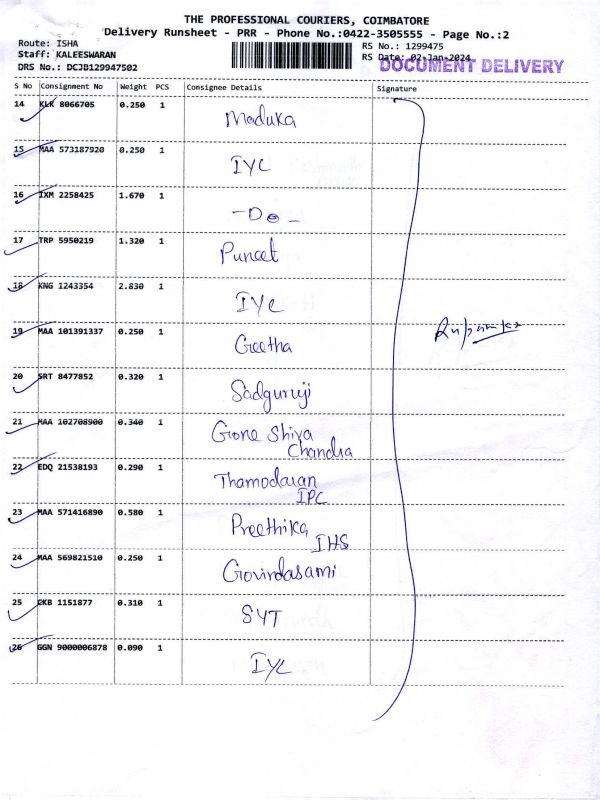 THE PROFESSIONAL COURIERS, COIMBATORE
Delivery Runsheet - PRR - Phone No.:0422-3505555 - Page No.:2
Route: ISHA
Staff: KALEESWARAN
DRS No.: DCJB129947502
RS No.: 1299475
RS Date: 02-Jan-2024
DOCUMENT DELIVERY
S No Consignment No Weight PCS Consignee Details Signature
14 KLK 8066705 0.250 1 Maduka
15 MAA 573187920 0.250 1 IYC
16 IXM 2258425 1.670 1 -Do-
17 TRP 5950219 1.320 1 Puneet
18 KNG 1243354 2.830 1 IYC
19 MAA 101391337 0.250 1 Geetha
20 SRT 8477852 0.320 1 Sadguruji
21 MAA 102708900 0.340 1 Gone Shiva
Chandra
22 EDQ 21538193 0.290 1 Thamodaran
IPC
23 MAA 571416890 0.580 1 Preethika
IHS
24 MAA 569821510 0.250 1 Govindasami
25 CKB 1151877 0.310 1 SYT
26 GGN 9000006878 0.090 1 IYC